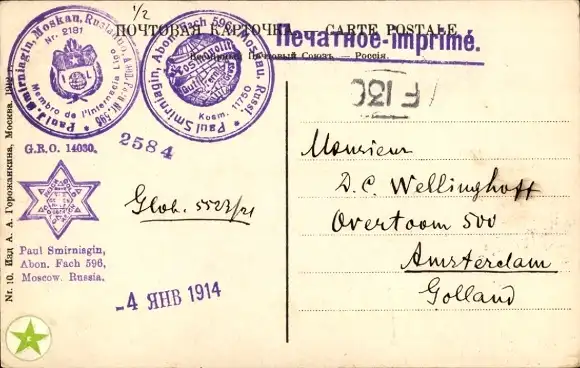 1/2
ПОЧТОВАЯ КАРТОЧКА. — CARTE POSTALE.
Всемірный Почтовый Союзъ. — Россія.
Печатное-imprimé.
Paul J. Smirniagin, Moskau, Russland, Abon. Fach Nr. 596
Nr. 2181
I L
Membro de l'Internacia Ligo
Paul Smirniagin, Abon. Fach 596, Moscau, Russl.
Kosm. 11750
2584
G.R.O. 14030.
Paul Smirniagin,
Abon. Fach 596,
Moscow. Russia.
Glob. 5523/21
-4 ЯНВ 1914
F 13C
Monsieur
D. C. Wellinghoff
Overtoom 500
Amsterdam
Golland
Nr. 10. Изд. А. А. Горожанкина, Москва.